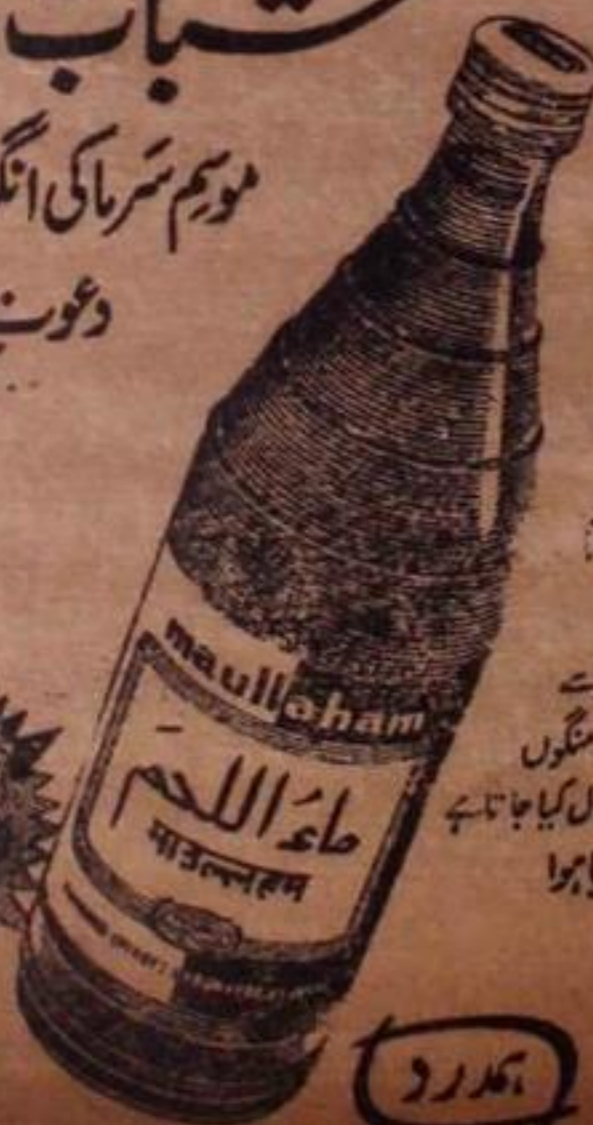 شباب
موسمِ سَرما کی
دعوت
maullaham
ماءُ اللحم
माउल्लहम
منگوں
کیا جاتا ہے
ہوا
ہمدرد